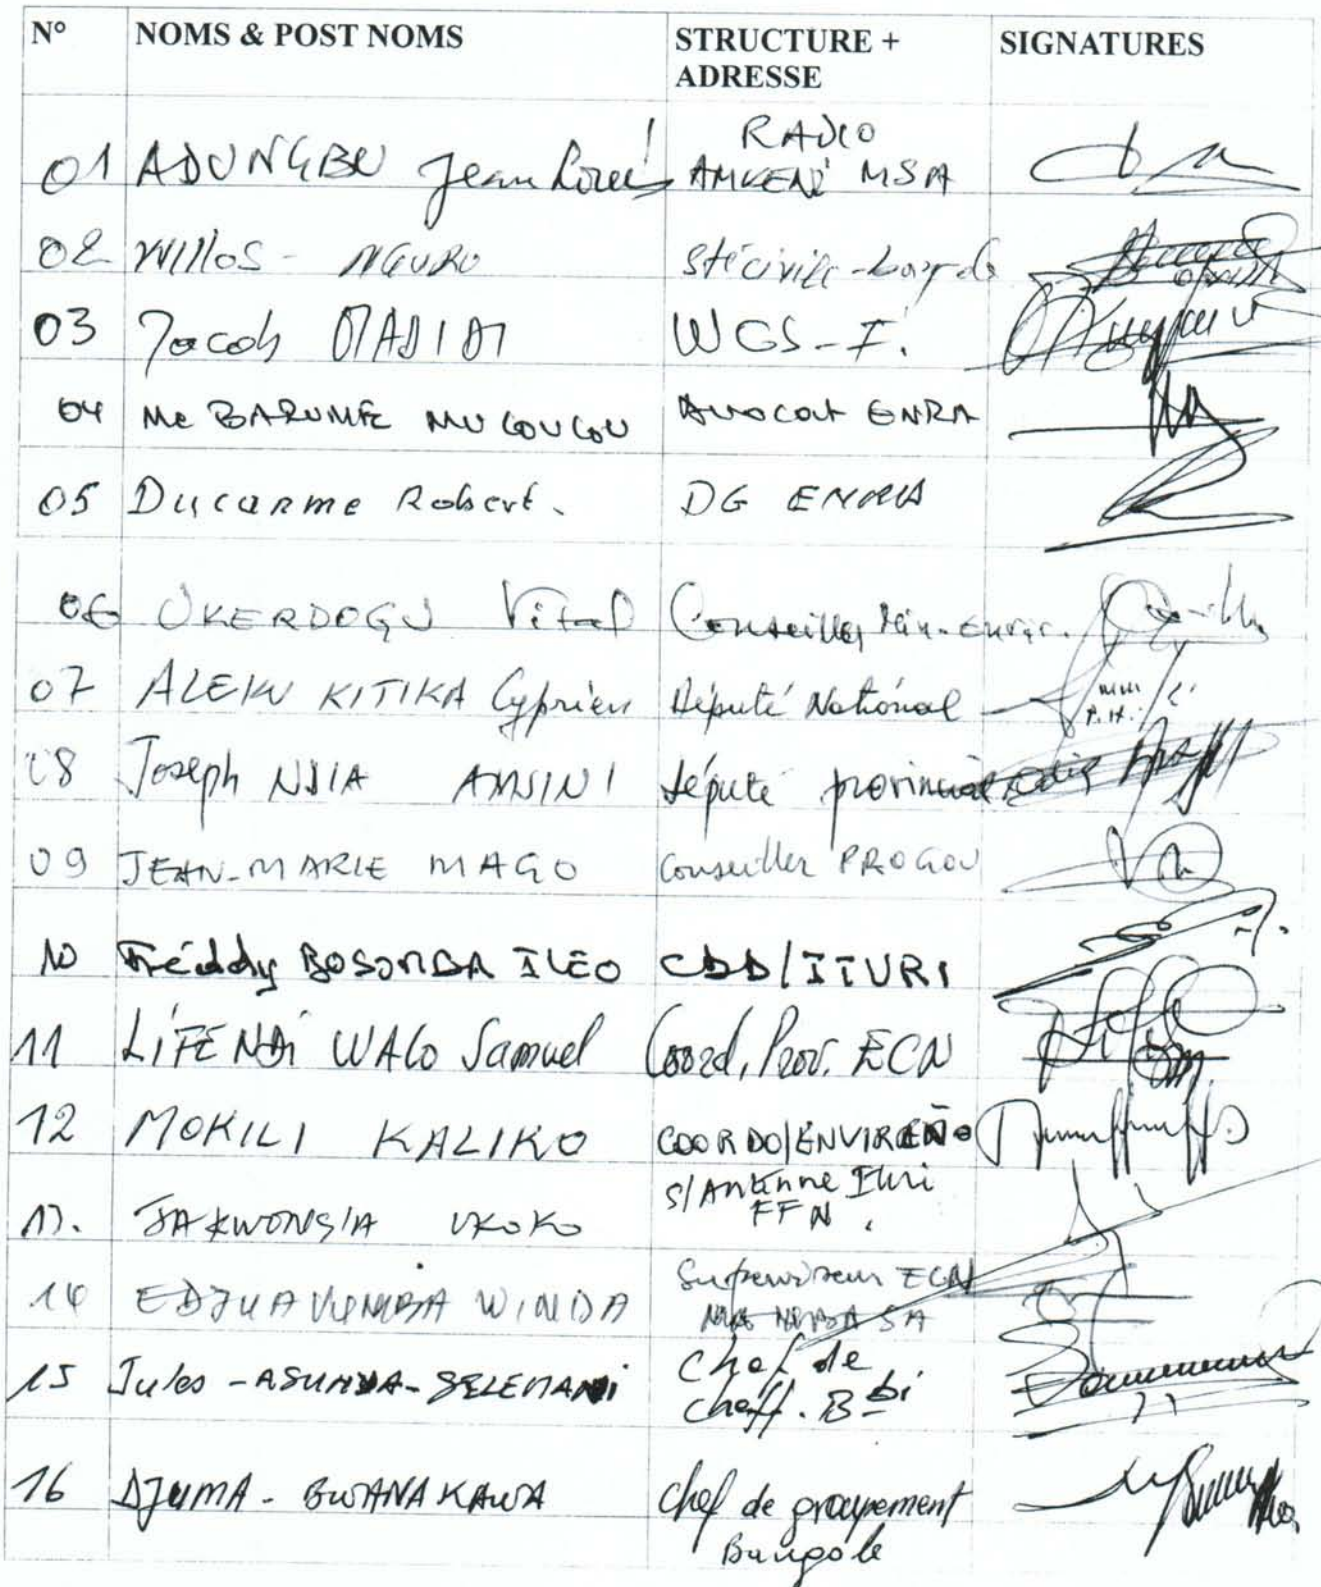 N° NOMS & POST NOMS STRUCTURE + ADRESSE SIGNATURES
01 ADUNGBU Jean Louis RADIO AMKENI MSA
02 Willos - NGURO Sté civile
03 Jacob MADIDI WGS-F.
04 Me BARUME MUGOUGOU Avocat ENRA
05 Ducarme Robert. DG ENRA
06 UKERDOGU Vital Conseiller Min. Envir.
07 ALEKU KITIKA Cyprien Député National
08 Joseph NDIA AMSINI député provincial
09 JEAN-MARIE MAGO Conseiller PROGOU
10 Freddy BOSOMBA ILEO CDD/ITURI
11 LIFENDI WALO Samuel Coord. Prov. ECN
12 MOKILI KALIKO COORDO/ENVIRONO
13. JAKWONGIA UKOKO S/Antenne Ituri FFN.
14 EDJUA WINDA Superviseur ECN SA
15 Jules - ASUMDA - SELEMANI Chef de cheff. Bbi
16 DJUMA - BWANAKAWA chef de groupement Bangole